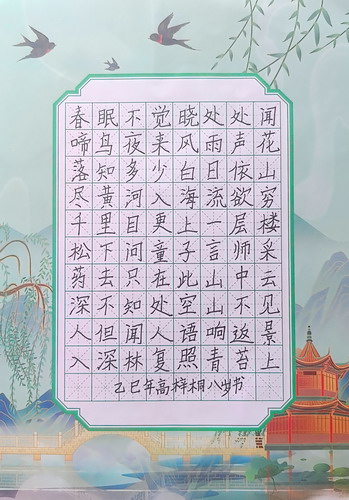 春眠不觉晓处处闻
啼鸟夜来风雨声花
落知多少白日依山
尽黄河入海流欲穷
千里目更上一层楼
松下问童子言师采
药去只在此山中云
深不知处空山不见
人但闻人语响返景
入深林复照青苔上
乙巳年高梓桐八岁书